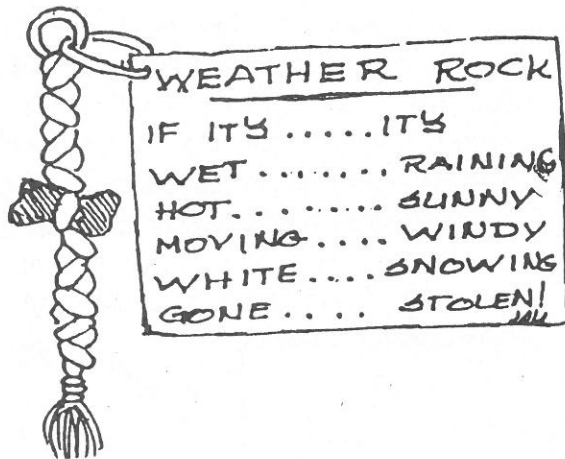 WEATHER ROCK
IF ITS ..... ITS
WET ........ RAINING
HOT ........ SUNNY
MOVING .... WINDY
WHITE .... SNOWING
GONE .... STOLEN!